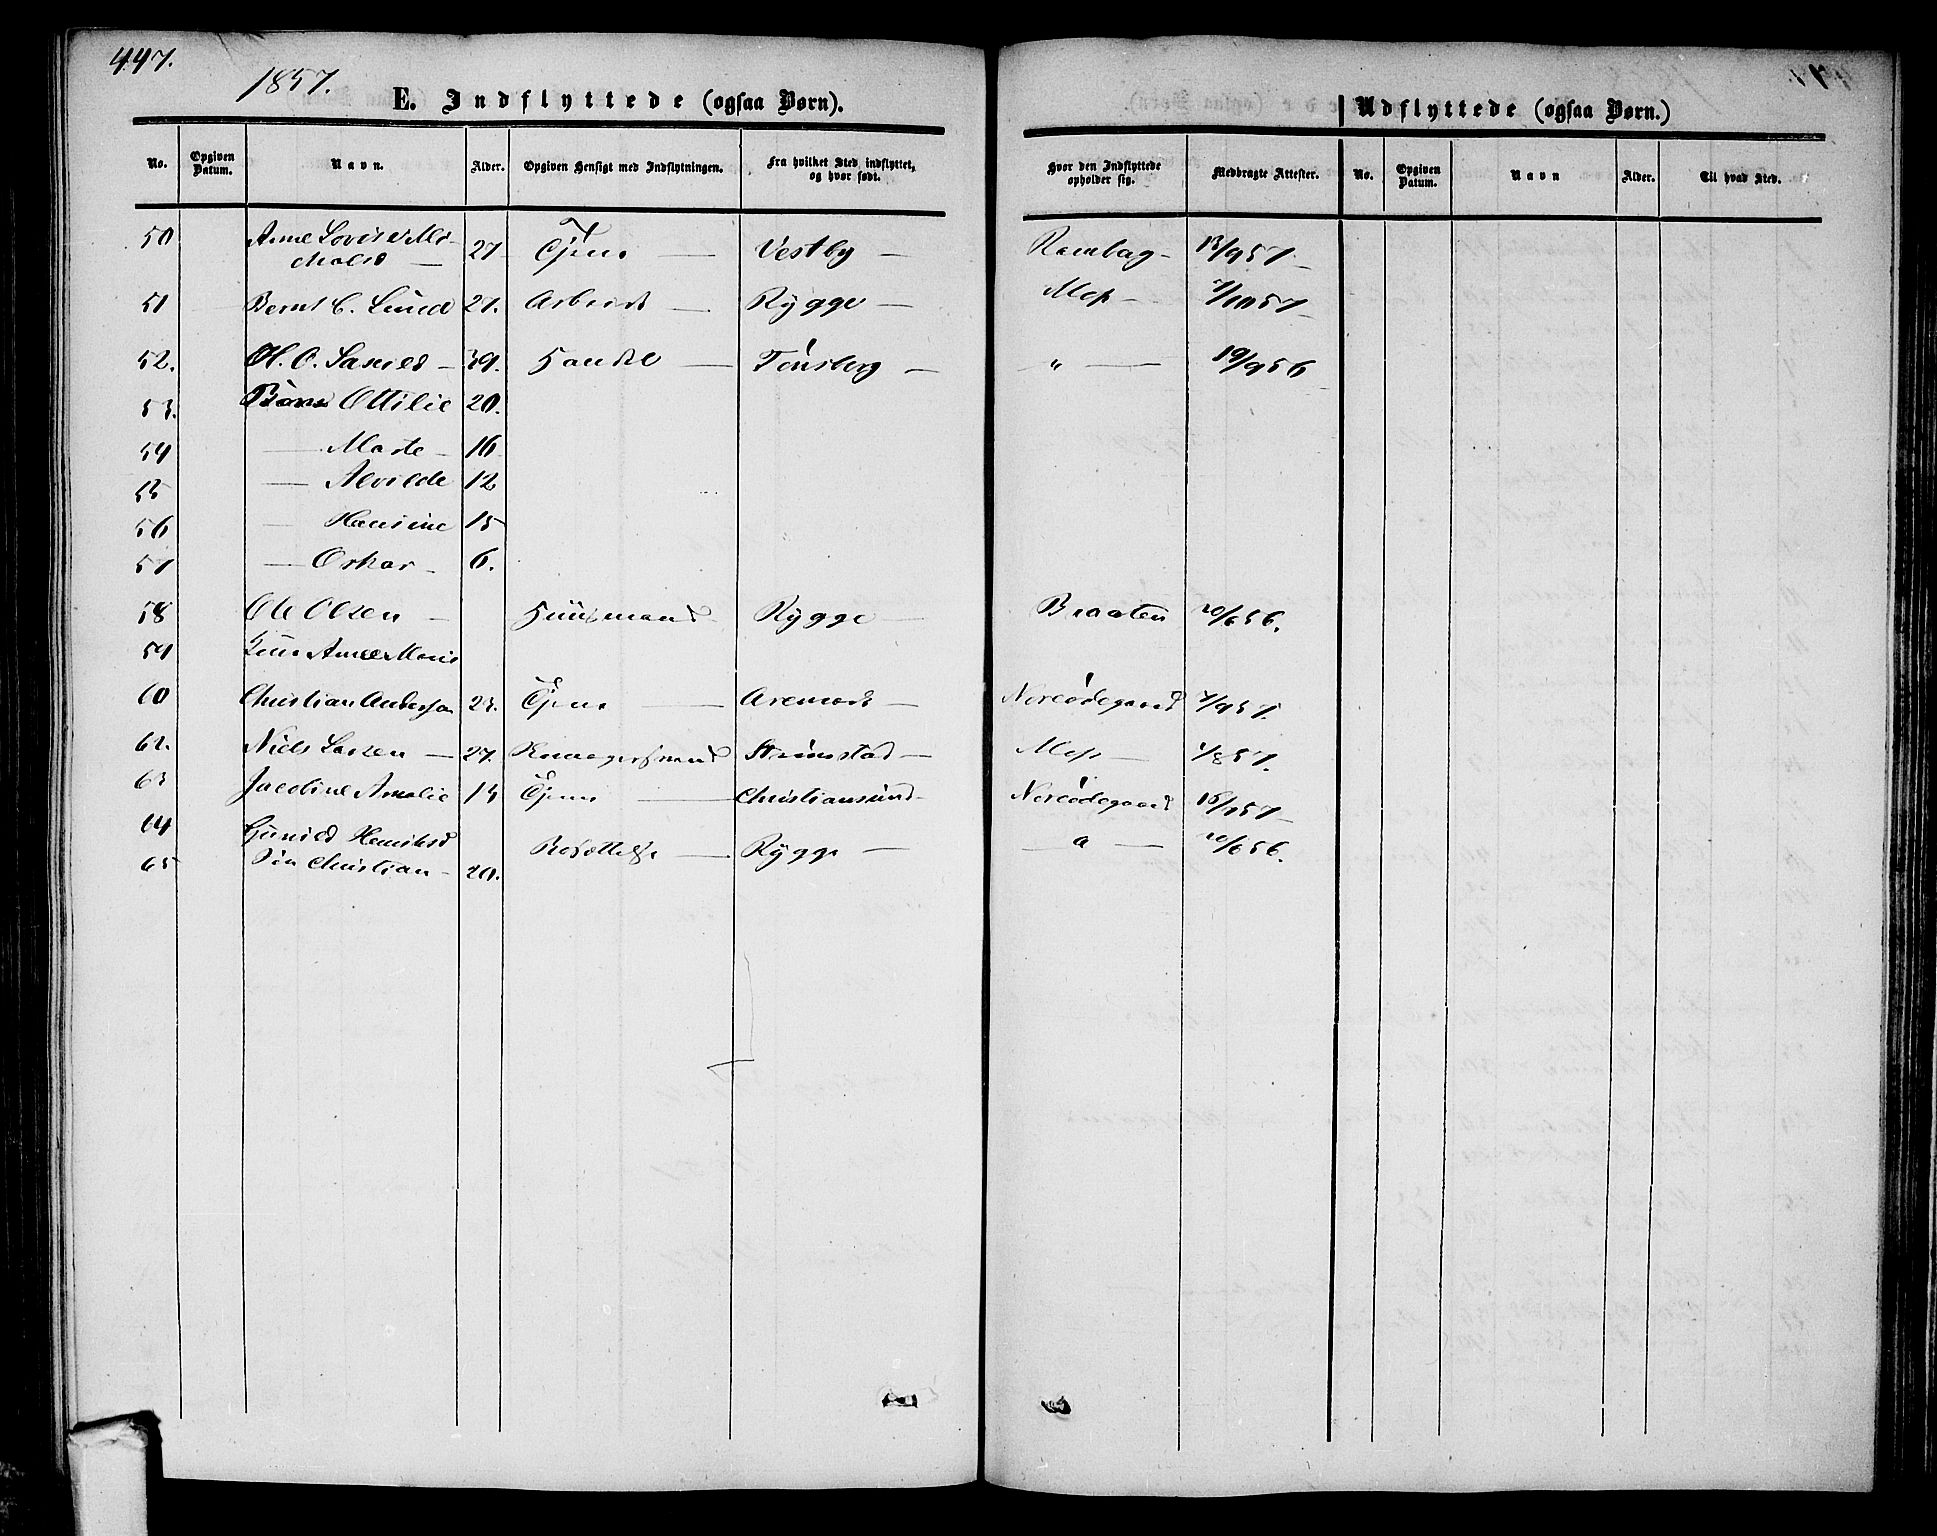 447.
1857.
E. Indflyttede (ogsaa Børn).
Udflyttede (ogsaa Børn.)
No. Opgiven Datum. Navn. Alder. Opgiven Hensigt med Indflytningen. Fra hvilket Sted indflyttet, og hvor født. Hvor den Indflyttede opholder sig. Medbragte Attester. No. Opgiven Datum. Navn Alder. Til hvad Sted.
50 Anne Lovise Mi-
chelsd — 27 Tjene — Vestby — Rambag - 13/9 57
51 Bernt C. Lund 27. Arbeide — Rygge — Moss - 7/10 57
52. H. O. — 39. Handel — Tønsberg — " — 19/9 56
53. Børn Ottilie 20.
54 — Marte - 16
55 — Alvilde 12
56 — Hansine 15
57 — Oskar - 6.
58 Ole Olsen — Huusmand Rygge — Braaten 20/6 56.
59 Anne Marie
60 Christian Andersen 23. Tjene — Aremark — Nordødegaard 7/9 57.
62. Niels Larsen — 27. Strømstad — Moss — 1/8 57.
63 Jacobine Amalie 15 Tjene — Christiansund - Nordødegaard 57
64 Gunild Henriksd Rygge — — " — 20/6 56.
65 Søn Christian - 20.